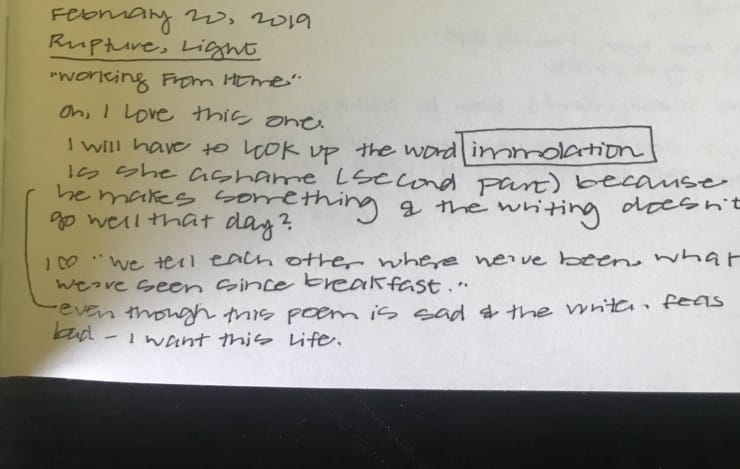 February 20, 2019
Rupture, Light
"Working From Home"
Oh, I love this one.
I will have to look up the word immolation
Is she ashame (second part) because
he makes something & the writing doesn't
go well that day?
I ♡ "we tell each other where we've been, what
we've seen since breakfast."
even though this poem is sad & the writer feels
bad - I want this life.